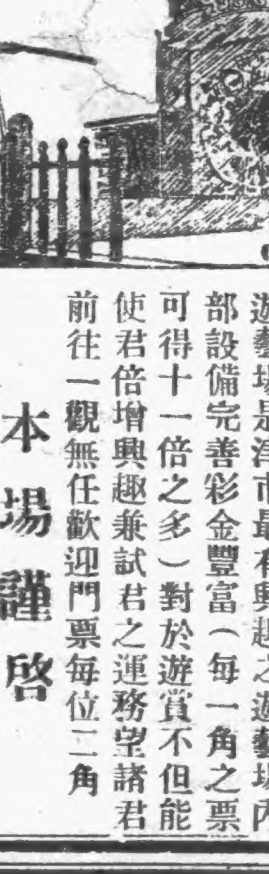 遊藝場是津市最有興趣之遊藝場內
部設備完善彩金豐富（每一角之票
可得十一倍之多）對於遊賞不但能
使君倍增興趣兼試君之運務望諸君
前往一觀無任歡迎門票每位二角
本場謹啓